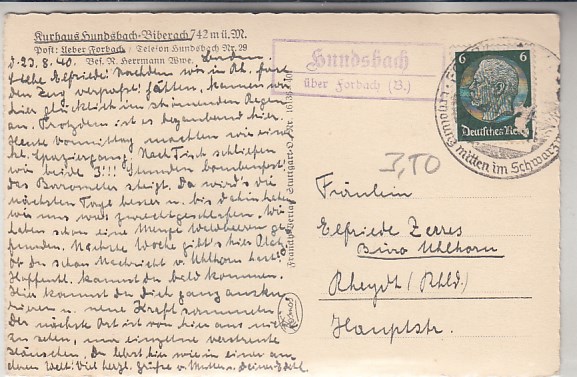 Kurhaus Hundsbach-Biberach 742 m ü. M.
Post: Ueber Forbach / Telefon Hundsbach Nr. 29
Bes. R. Herrmann Wwe.
d. 23.8.40.
Liebe Elfriede! Nachdem wir in
den Zug verpasst hätten, kamen wir
hier glücklich im strömenden Regen
an. Trotzdem ist es bezaubernd hier.
Heute Vormittag machten wir ein
kl. Spaziergang. Nach Tisch schliefen
wir beide 3!!! Stunden bombenfest.
Das Barometer steigt. Da wird's die
nächsten Tage besser u. bis dahin haben
wir uns was zurechtgeschlafen. Wir
haben schon eine Menge Waldbeeren ge-
funden. Nächste Woche gibt's hier
Ob du schon Nachricht v. Uhlhorn hast?
Hoffentl. kannst du bald kommen.
Hier kannst du dich ganz ausku-
rieren u. neue Kraft sammeln.
Der nächste Ort ist von hier aus nicht
zu sehen, nur einzelne verstreute
Häuschen. Du lebst hier wie in einer an-
deren Welt! Viel herzl. Grüße v. Mutter u. Deiner
Hundsbach
über Forbach (B.)
6 6
Deutsches Reich
mitten im Schwarz
3,50
Fräulein
Elfriede Zerres
Büro Uhlhorn
Rheydt (Rhld.)
Hauptstr.